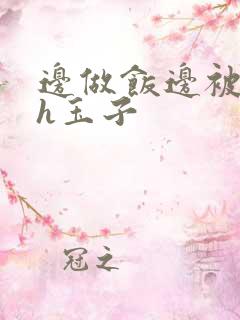 邊做飯邊被
h玉子
冠之